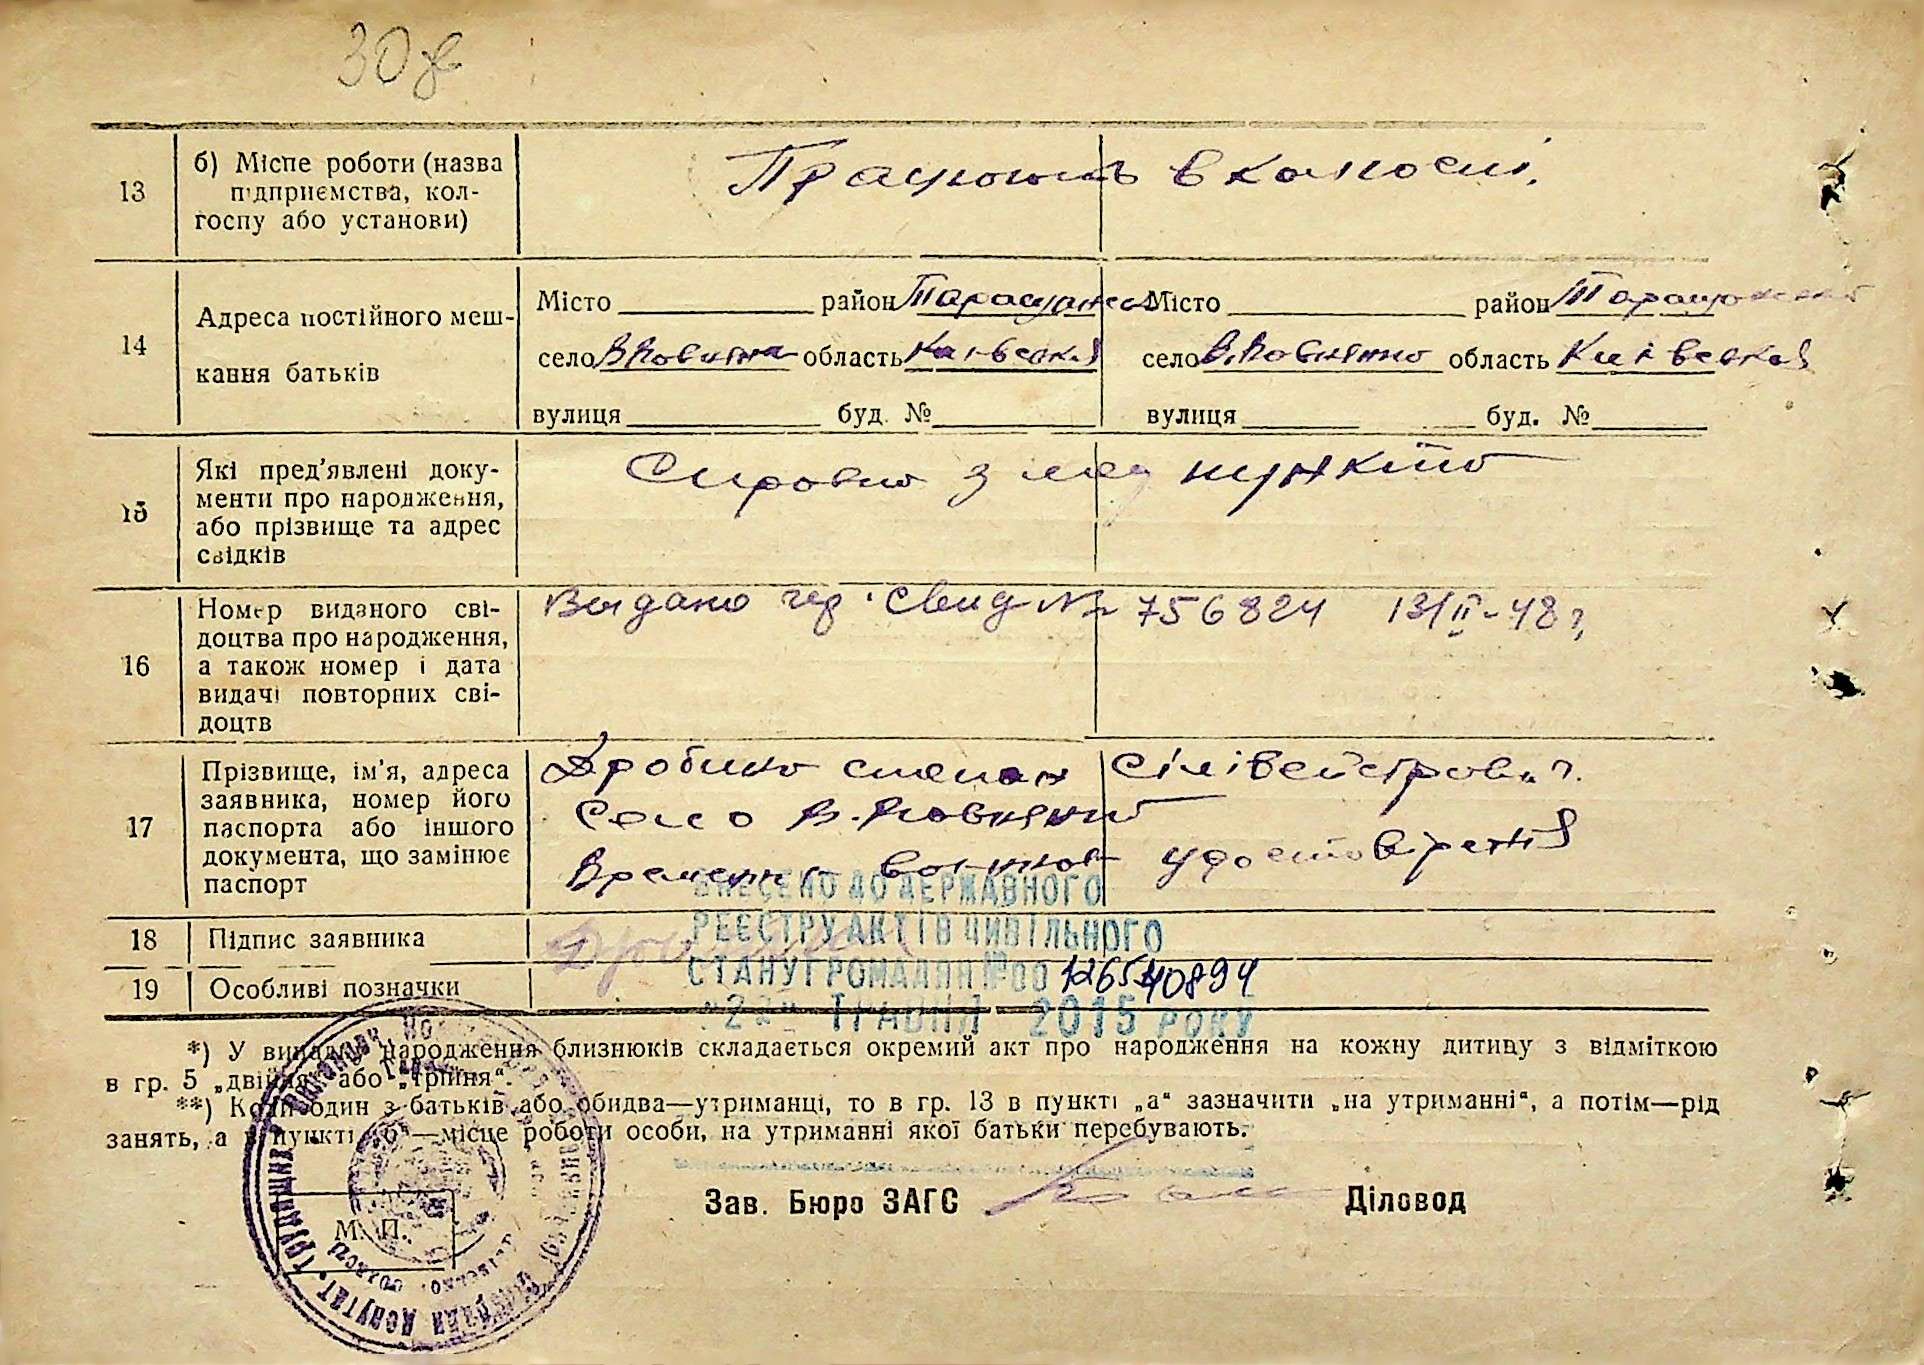 30
13
б) Місце роботи (назва
підприємства, кол-
госпу або установи)
Працюють в колгоспі.
14
Адреса постійного меш-
кання батьків
Місто район
село область Київська
вулиця буд. №
Місто район
село область Київська
вулиця буд. №
15
Які пред'явлені доку-
менти про народження,
або прізвище та адрес
свідків
Справка з мед пункта
16
Номер виданого сві-
доцтва про народження,
а також номер і дата
видачі повторних сві-
доцтв
Выдано Свид № 756824 13/II-48 г,
17
Прізвище, ім'я, адреса
заявника, номер його
паспорта або іншого
документа, що замінює
паспорт
степан Сілівейстрович.
Село
удостовірення
18
Підпис заявника
19
Особливі позначки
ВНЕСЕНО ДО ДЕРЖАВНОГО
РЕЄСТРУ АКТІВ ЦИВІЛЬНОГО
СТАНУ ГРОМАДЯН № 00126540894
"22" ТРАВНЯ 2015 РОКУ
*) У випадку народження близнюків складається окремий акт про народження на кожну дитину з відміткою
в гр. 5 „двійня" або „трійня".
**) Коли один з батьків або обидва—утриманці, то в гр. 13 в пункті „а" зазначити „на утриманні", а потім—рід
занять, а в пункті „б"—місце роботи особи, на утриманні якої батьки перебувають.
Зав. Бюро ЗАГС
Діловод
М. П.